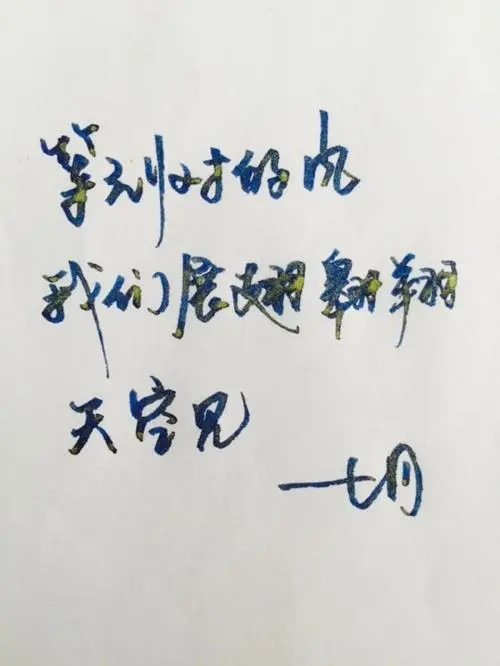 等到对的风
我们展翅翱翔
天空见
——七月